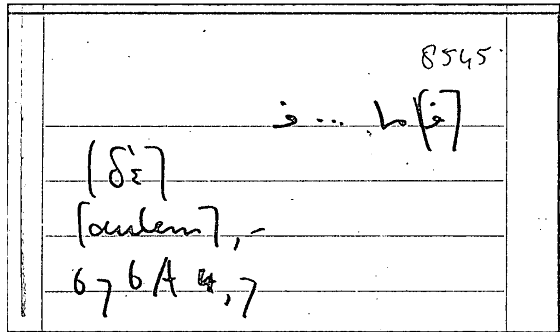 8545
[ف]ما ... ف
[δὲ]
[autem],-
676A 4,7